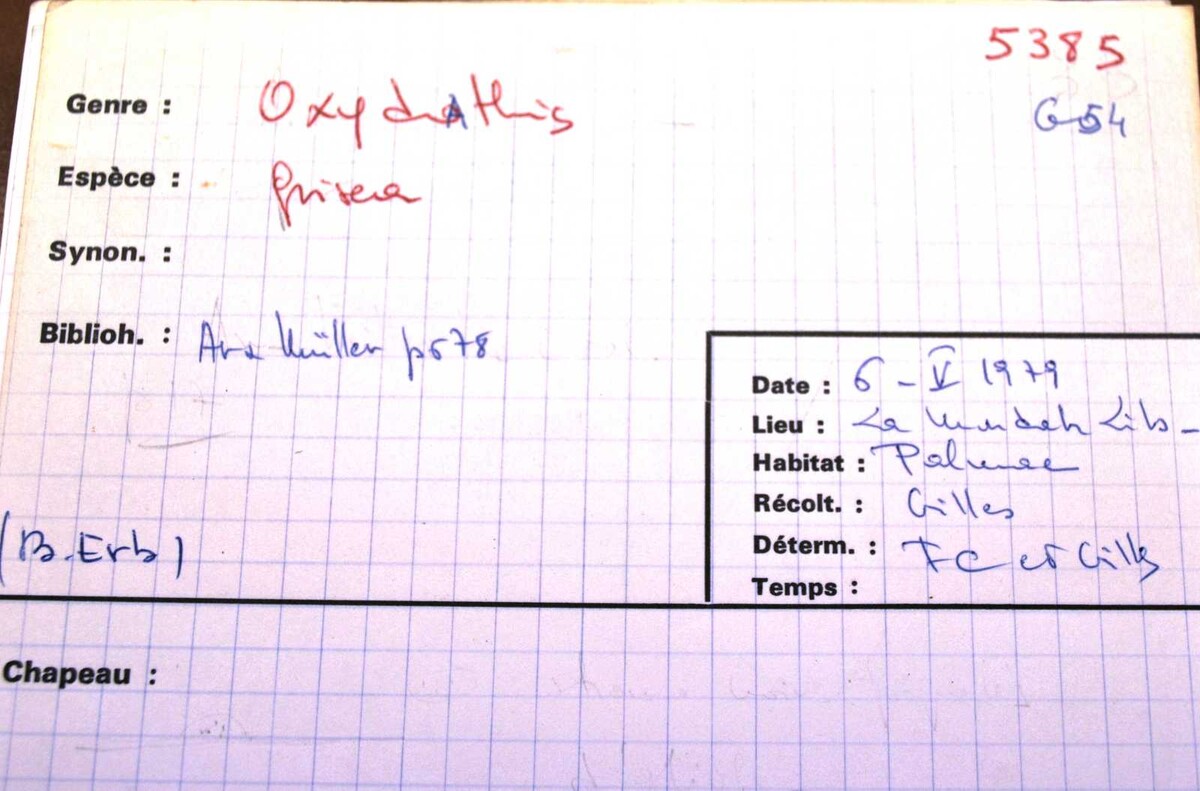 5385
Genre : Oxydothis
G54
Espèce : grisea
Synon. :
Biblioh. : Arx Müller p 678
Date : 6 - V 1979
Lieu : La
Habitat : Palmae
Récolt. : Gilles
Déterm. : FC et Gilles
(B. Erb)
Temps :
Chapeau :